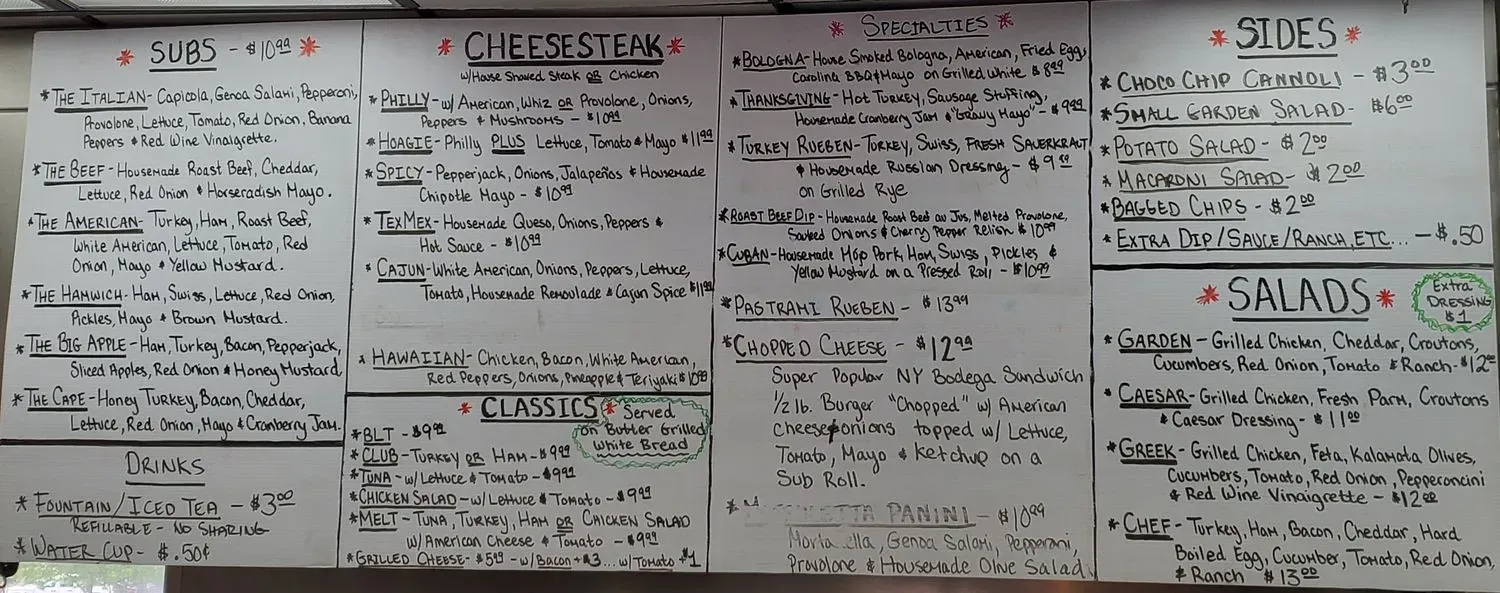 SUBS - $10.99
*THE ITALIAN - Capicola, Genoa Salami, Pepperoni,
Provolone, Lettuce, Tomato, Red Onion, Banana
Peppers & Red Wine Vinaigrette.
*THE BEEF - Housemade Roast Beef, Cheddar,
Lettuce, Red Onion & Horseradish Mayo.
*THE AMERICAN - Turkey, Ham, Roast Beef,
White American, Lettuce, Tomato, Red
Onion, Mayo & Yellow Mustard.
*THE HAMWICH - Ham, Swiss, Lettuce, Red Onion,
Pickles, Mayo & Brown Mustard.
*THE BIG APPLE - Ham, Turkey, Bacon, Pepperjack,
Sliced Apples, Red Onion & Honey Mustard.
*THE CAPE - Honey TURKEY, Bacon, Cheddar,
Lettuce, Red Onion, Mayo & Cranberry Jam.
DRINKS
*FOUNTAIN/ICED TEA - $3.00
REFILLABLE - NO SHARING
*WATER CUP - $.50¢
CHEESESTEAK
w/House Shaved Steak OR Chicken
*PHILLY - w/ American, Whiz OR Provolone, Onions,
Peppers & Mushrooms - $10.99
*HOAGIE - Philly PLUS Lettuce, Tomato & Mayo $11.99
*SPICY - Pepperjack, Onions, Jalapeños & Housemade
Chipotle Mayo - $10.99
*TEXMEX - Housemade Queso, Onions, Peppers &
Hot Sauce - $10.99
*CAJUN - White American, Onions, Peppers, Lettuce,
Tomato, Housemade Remoulade & Cajun Spice $11.99
*HAWAIIAN - Chicken, Bacon, White American,
Red Peppers, Onions, Pineapple & Teriyaki $10.99
CLASSICS
Served
on Butter Grilled
White Bread
*BLT - $9.99
*CLUB - TURKEY OR HAM - $9.99
*TUNA - w/ Lettuce & Tomato - $9.99
*CHICKEN SALAD - w/ Lettuce & Tomato - $9.99
*MELT - TUNA, TURKEY, HAM OR CHICKEN SALAD
w/ American Cheese & Tomato - $9.99
*GRILLED CHEESE - $5.99 - w/ Bacon + $3... w/ Tomato $1
SPECIALTIES
*BOLOGNA - House Smoked Bologna, American, Fried Egg,
Carolina BBQ & Mayo on Grilled White $8.99
*THANKSGIVING - Hot Turkey, Sausage Stuffing,
Housemade Cranberry Jam & "Gravy Mayo" - $9.99
*TURKEY RUEBEN - TURKEY, SWISS, FRESH SAUERKRAUT
& Housemade Russian Dressing - $9.99
on Grilled Rye
*ROAST BEEF DIP - Housemade Roast Beef au Jus, Melted Provolone,
Sauteed Onions & Cherry Pepper Relish $10.99
*CUBAN - Housemade Mojo Pork, Ham, Swiss, Pickles &
Yellow Mustard on a Pressed Roll - $10.99
*PASTRAMI RUEBEN - $13.99
*CHOPPED CHEESE - $12.99
Super Popular NY Bodega Sandwich
1/2 lb. Burger "Chopped" w/ American
cheese & onions topped w/ Lettuce,
Tomato, Mayo & Ketchup on a
Sub Roll.
PANINI - $10.99
Genoa Salami, Pepperoni,
Provolone & Housemade Olive Salad
SIDES
*CHOCO CHIP CANNOLI - $3.00
*SMALL GARDEN SALAD - $6.00
*POTATO SALAD - $2.00
*MACARONI SALAD - $2.00
*BAGGED CHIPS - $2.00
*EXTRA DIP/SAUCE/RANCH, ETC... - $.50
SALADS
Extra
DRESSING
$1
*GARDEN - Grilled Chicken, Cheddar, Croutons,
Cucumbers, Red Onion, Tomato & Ranch - $12.00
*CAESAR - Grilled Chicken, Fresh Parm, Croutons
& Caesar Dressing - $11.00
*GREEK - Grilled Chicken, Feta, Kalamata Olives,
Cucumbers, Tomato, Red Onion, Pepperoncini
& Red Wine Vinaigrette - $12.00
*CHEF - Turkey, Ham, Bacon, Cheddar, Hard
Boiled Egg, Cucumber, Tomato, Red Onion,
& Ranch $13.00